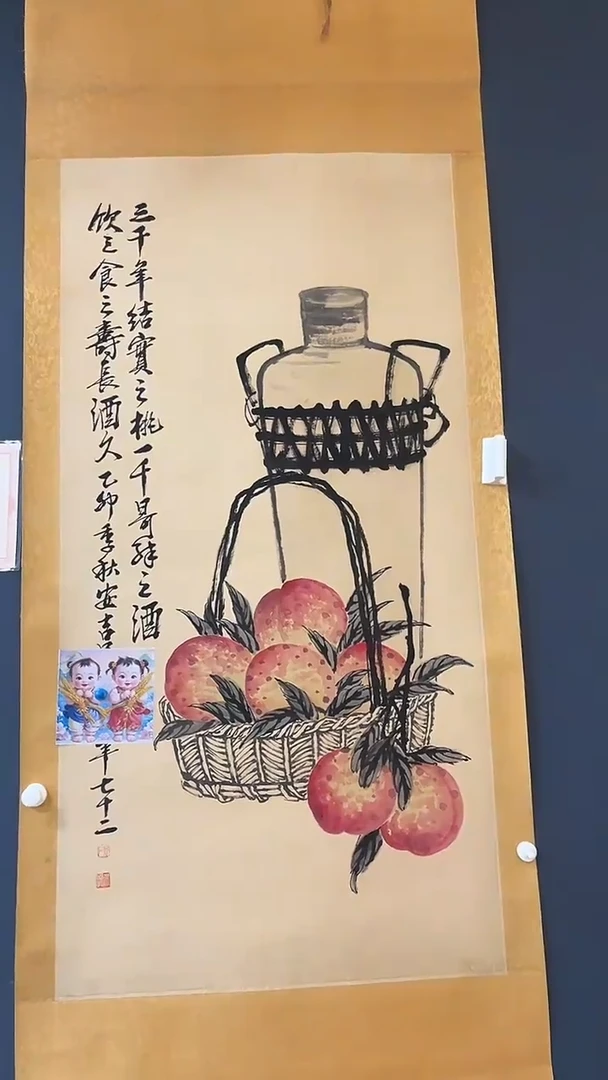 三千年結實之桃一千之酒
飲之食之壽長酒久乙卯季秋安吉年七十二